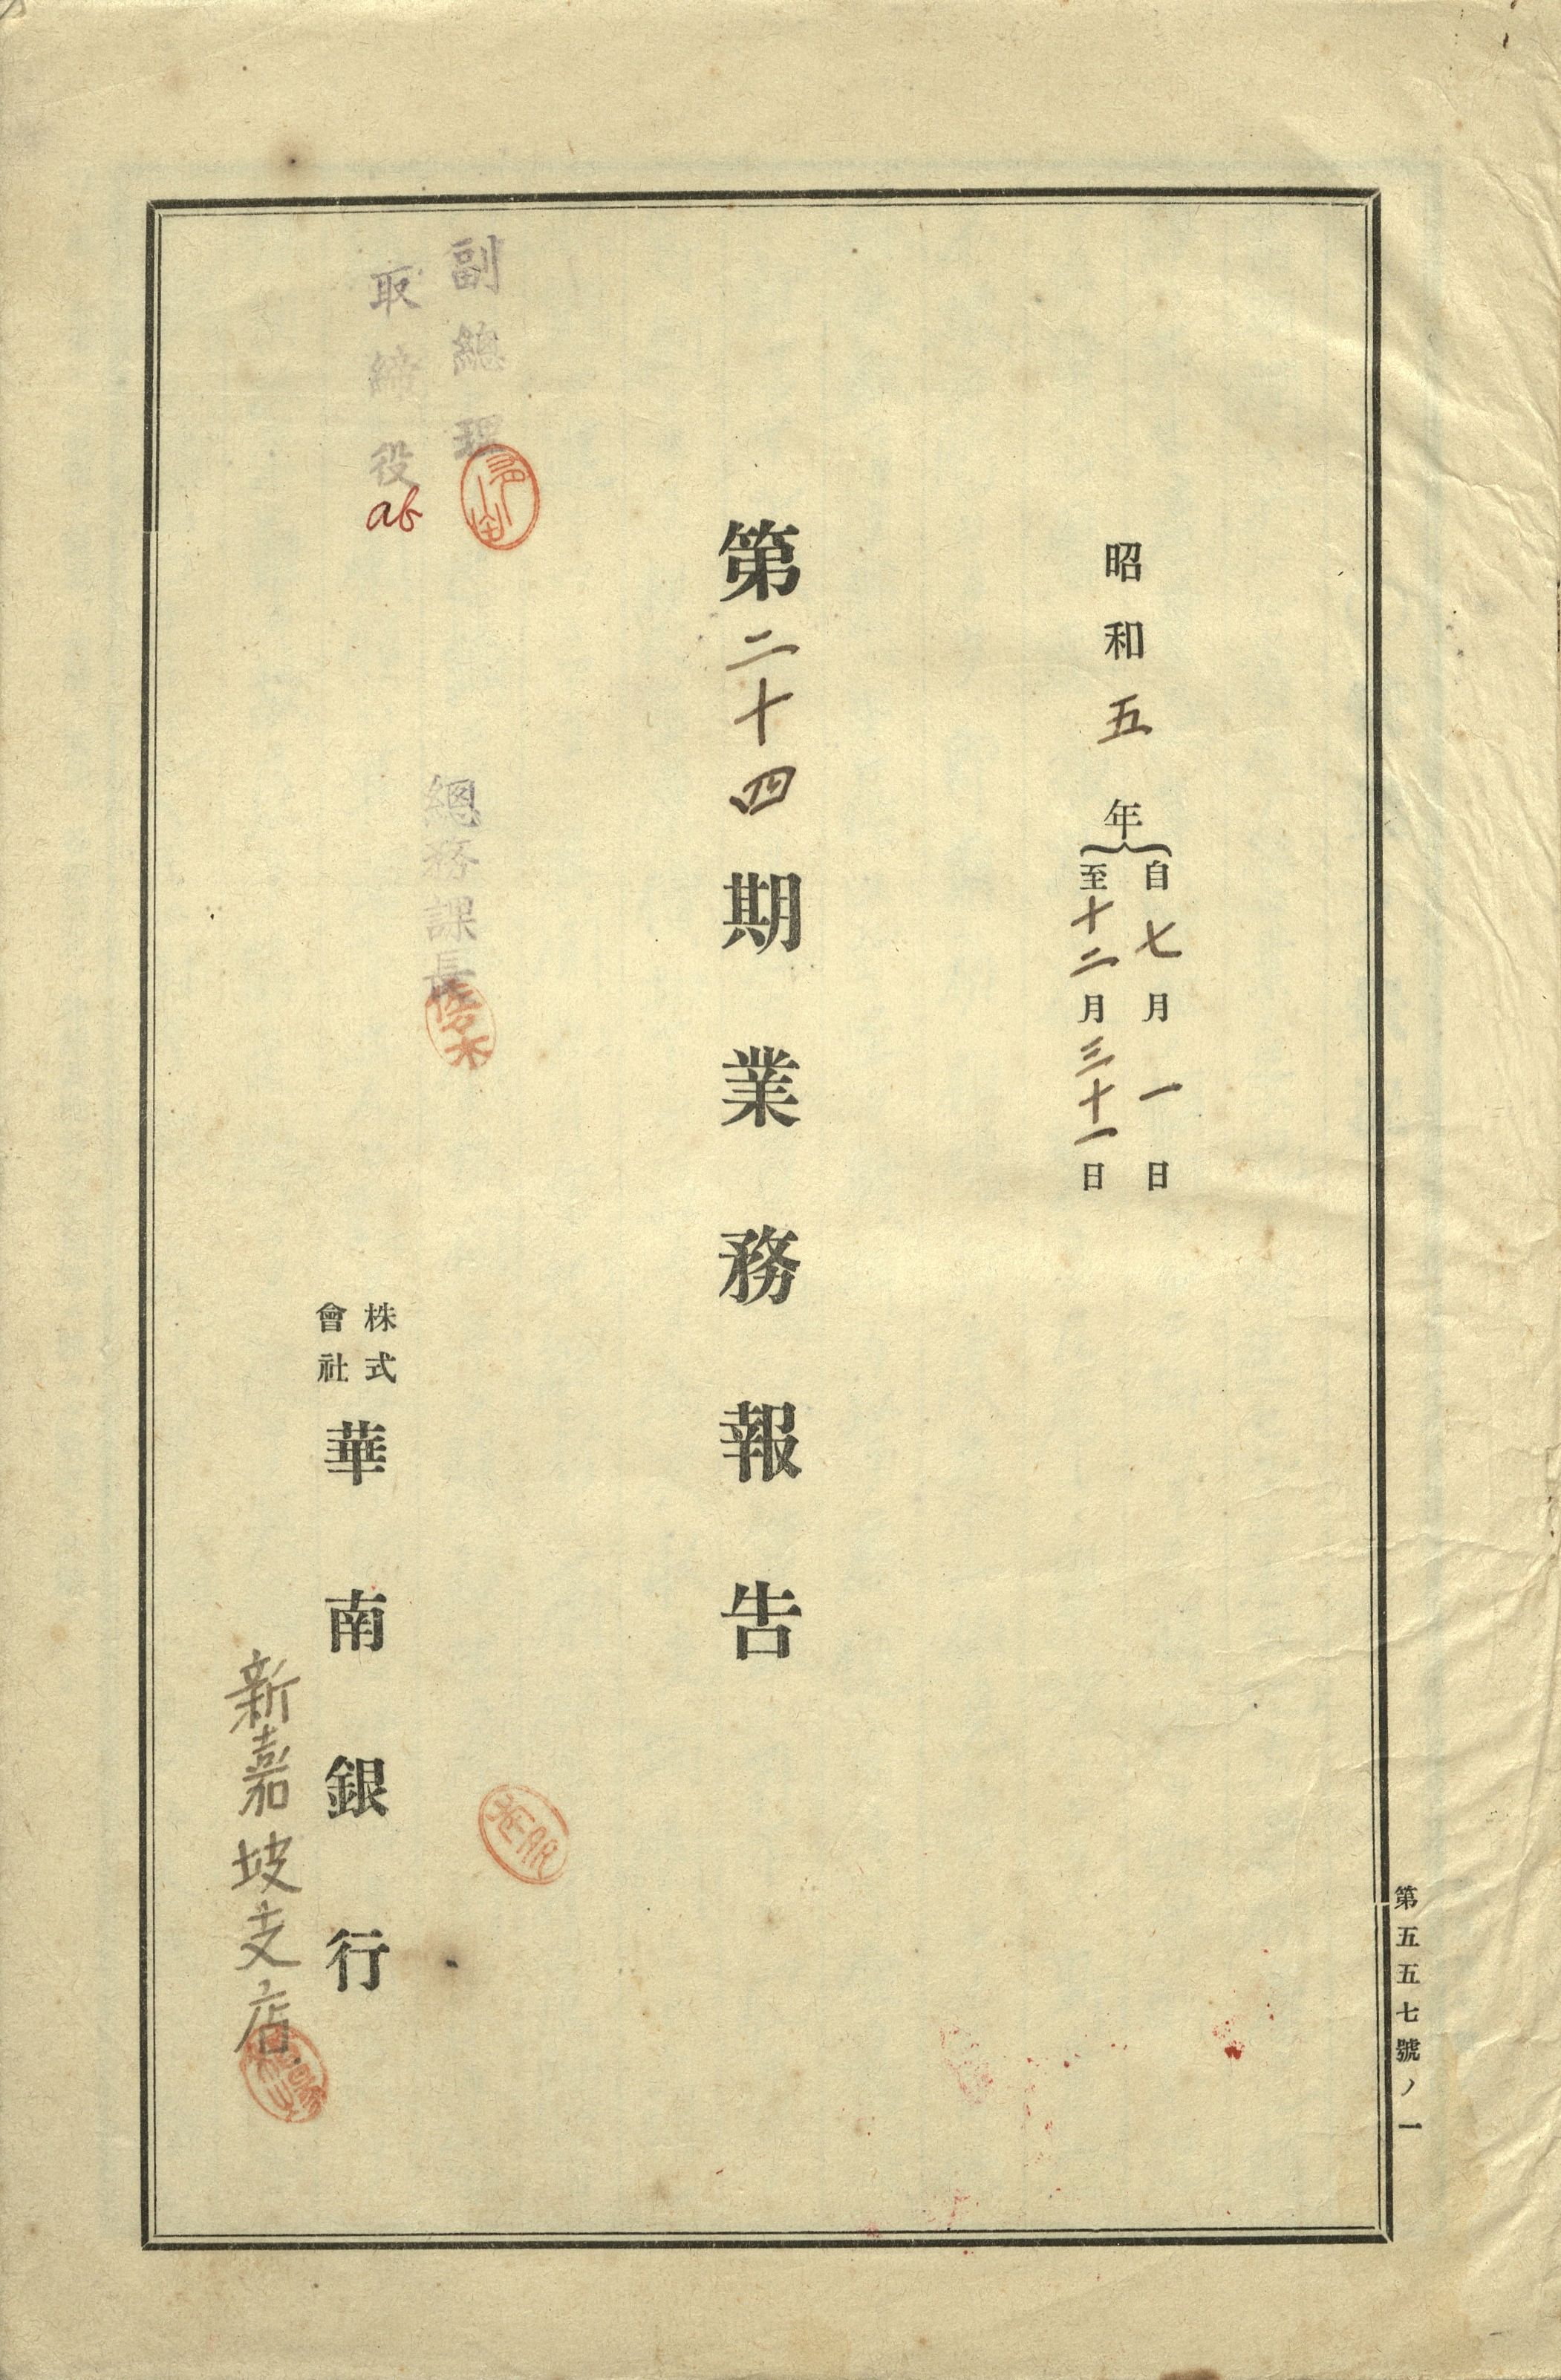 昭和五年
自七月一日
至十二月三十一日
第二十四期業務報告
副總理
取締役
ab
總務課長
株式
會社
華南銀行
新嘉坡支店
第五五七號ノ一